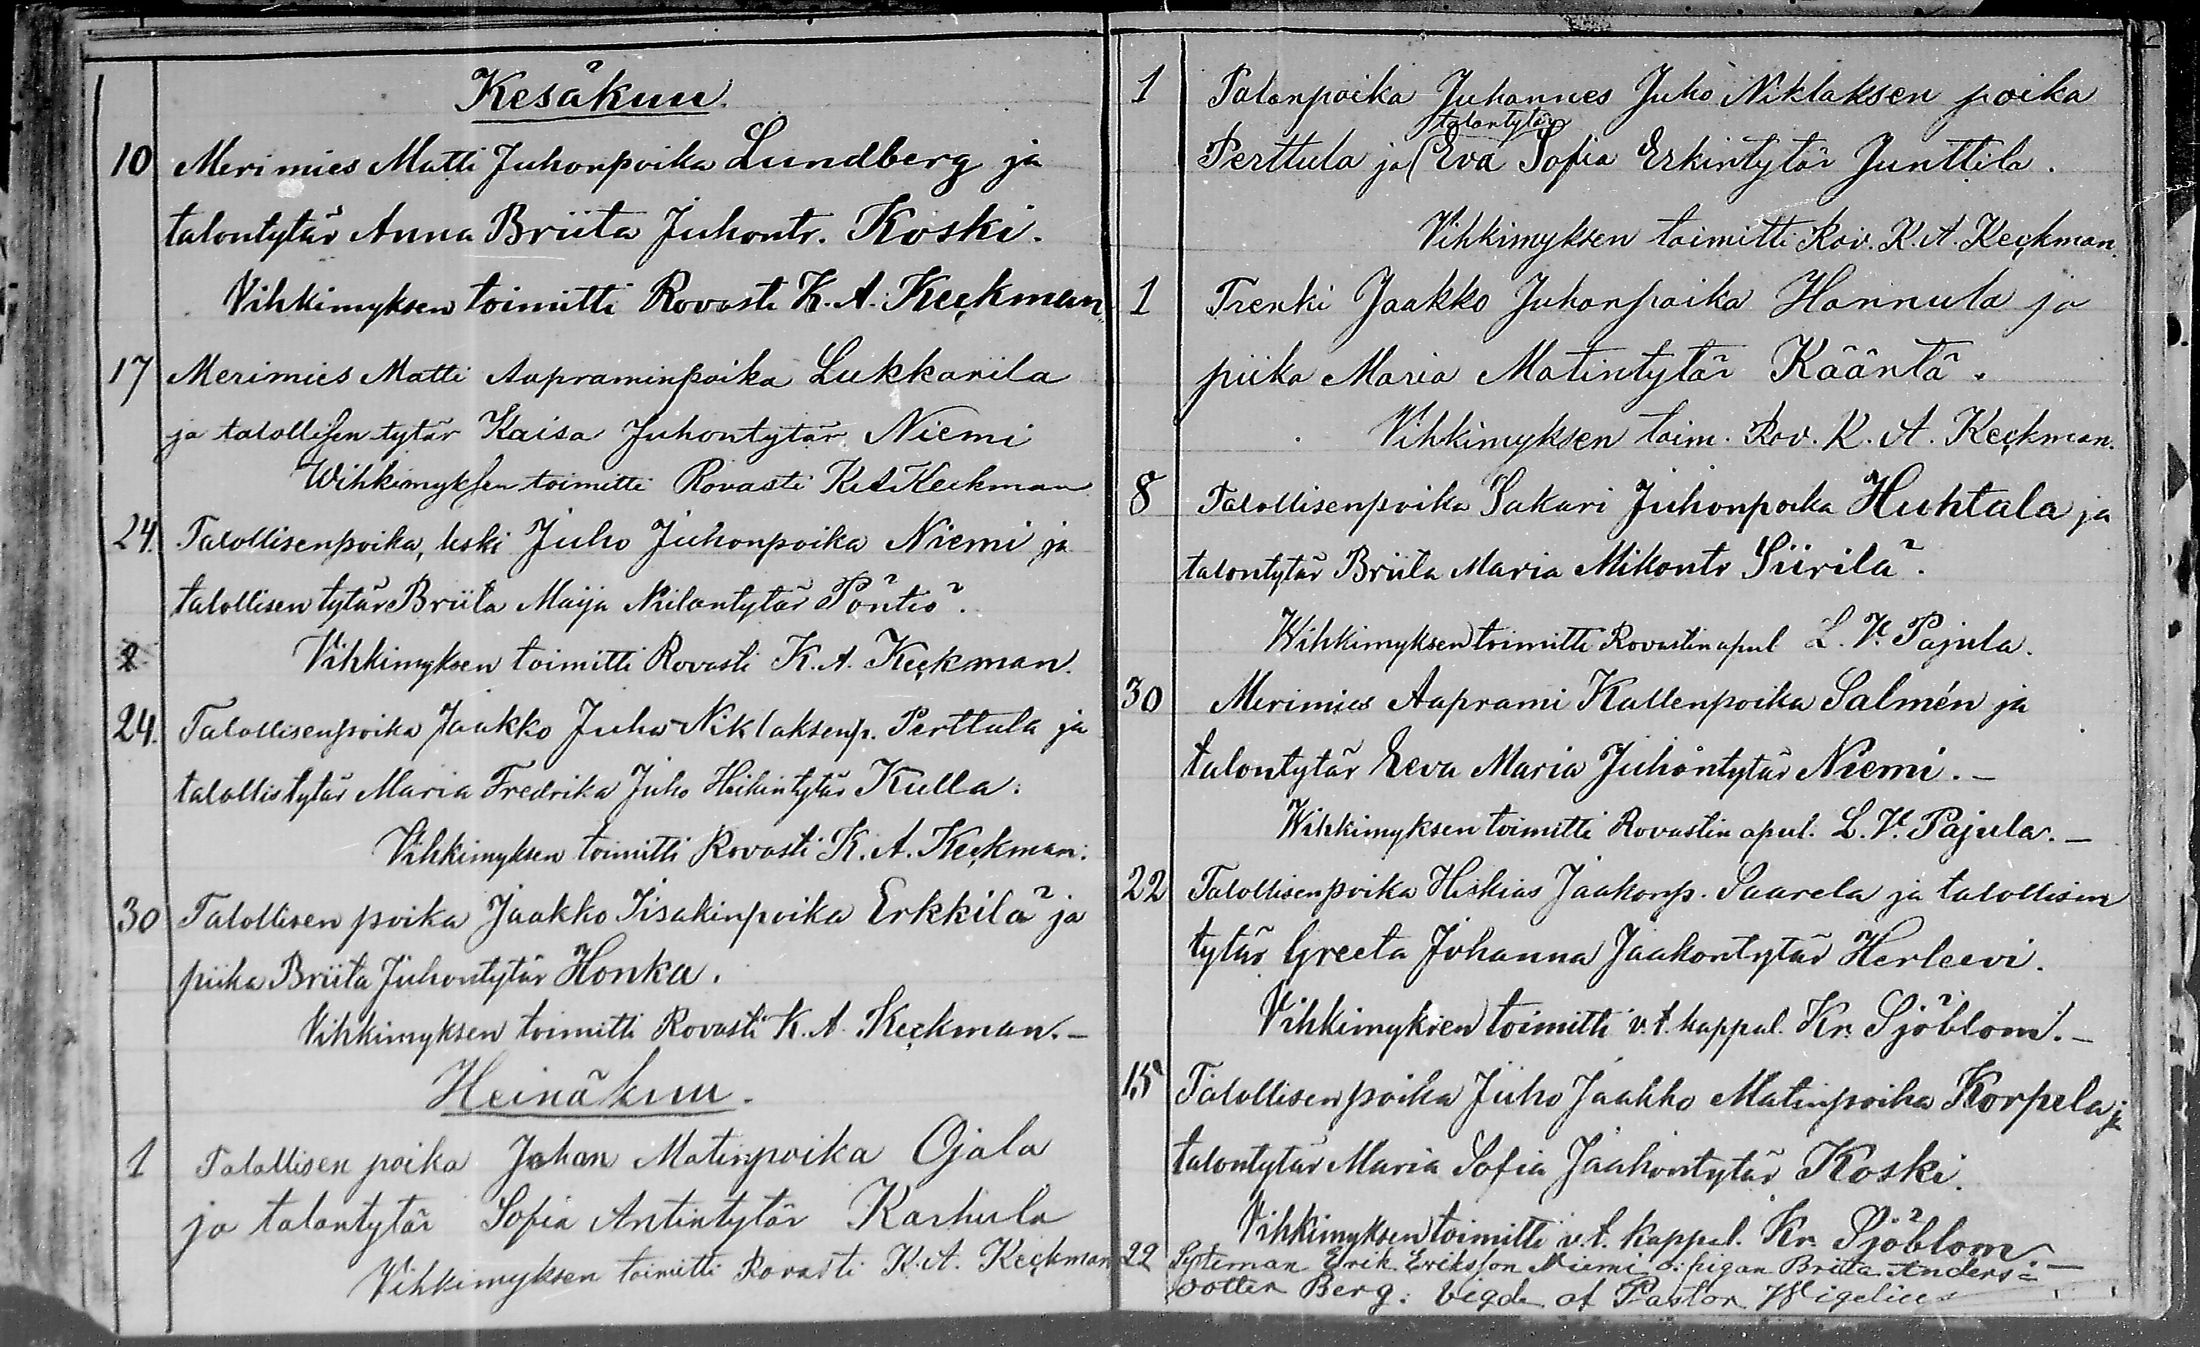 Kesäkuu.
10 Merimies Matti Juhonpoika Lundberg ja
talontytär Anna Briita Juhontr. Koski.
Vihkimyksen toimitti Rovasti K. A. Keckman.
17 Merimies Matti Aapraminpoika Lukkarila
ja talollisen tytär Kaisa Juhontytär Niemi
Wihkimyksen toimitti Rovasti K A Keckman
24. Talollisenpoika, leski Juho Juhonpoika Niemi ja
talollisen tytär Briita Maija Niilontytär Pöntiö.
Vihkimyksen toimitti Rovasti K. A. Keckman.
24. Talollisenpoika Jaakko Juho Niklaksenp. Perttula ja
talollistytär Maria Fredrika Juho Heikintytär Kulla.
Vihkimyksen toimitti Rovasti K. A. Keckman.
30 Talollisen poika Jaakko Iisakinpoika Erkkilä ja
piika Briita Juhontytär Honka.
Vihkimyksen toimitti Rovasti K. A. Keckman. –
Heinäkuu.
1 Talollisen poika Johan Matinpoika Ojala
ja talontytär Sofia Antintytär Karhula
Vihkimyksen toimitti Rovasti K. A. Keckman
1 Talonpoika Juhannes Juho Niklaksen poika
talontytär
Perttula ja Eva Sofia Erkintytär Junttila.
Vihkimyksen toimitti Rov. K. A. Keckman.
1 Trenki Jaakko Juhonpoika Hannula ja
piika Maria Matintytär Kääntä.
Vihkimyksen toim. Rov. K. A. Keckman.
8 Talollisenpoika Sakari Juhonpoika Huhtala ja
talontytär Briita Maria Mikontr Siirilä.
Wihkimyksen toimitti Rovastin apul L. V. Pajula.
30 Merimies Aaprami Kallenpoika Salmén ja
talontytär Eeva Maria Juhontytär Niemi. –
Wihkimyksen toimitti Rovastin apul. L. V. Pajula. –
22 Talollisenpoika Hiskias Jaakonp. Saarela ja talollisen
tytär Greeta Johanna Jaakontytär Herleevi.
Vihkimyksen toimitti v. t. kappal. Kr. Sjöblom. –
15 Talollisen poika Juho Jaakko Matinpoika Korpela ja
talontytär Maria Sofia Jaakontytär Koski.
Vihkimyksen toimitti v. t. kappal. Kr. Sjöblom. –
22 Syteman Erik Eriksson Niemi o. pigan Brita Anders=
dotter Berg. Vigde af Pastor Wigelius